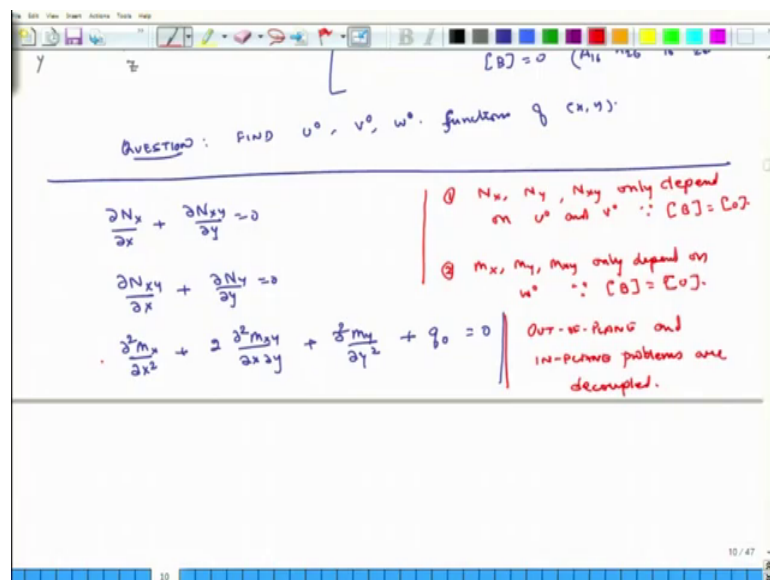 File Edit View Insert Actions Tools Help
y z
[B] = 0 (A16 A26
QUESTION: FIND u⁰, v⁰, w⁰. functions of (x, y).
∂Nx/∂x + ∂Nxy/∂y = 0
∂Nxy/∂x + ∂Ny/∂y = 0
∂²mx/∂x² + 2 ∂²mxy/∂x∂y + ∂²my/∂y² + q₀ = 0
① Nx, Ny, Nxy only depend
on u⁰ and v⁰ ∵ [B] = [0].
② mx, my, mxy only depend on
w⁰ ∵ [B] = [0].
OUT-OF-PLANE and
IN-PLANE problems are
decoupled.
10 / 47
10